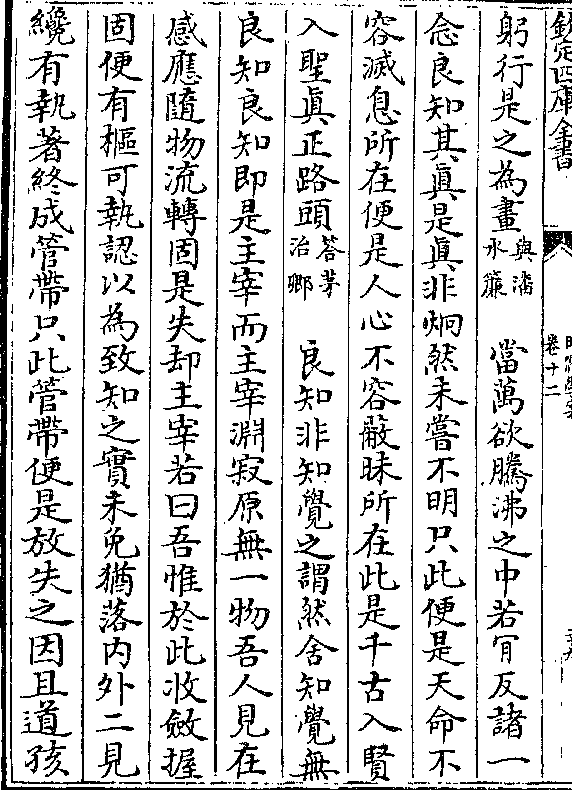 欽定四庫全書
卷十二
躬行是之為畫與潘水簾 當萬欲騰沸之中若肎反諸一
念良知其真是真非炯然未嘗不明只此便是天命不
容滅息所在便是人心不容蔽昧所在此是千古入賢
入聖真正路頭答茅治卿 良知非知覺之謂然舍知覺無
良知良知即是主宰而主宰淵寂原無一物吾人見在
感應隨物流轉固是失却主宰若曰吾惟於此收斂握
固便有樞可執認以為致知之實未免猶落内外二見
纔有執著終成管帶只此管帶便是放失之因且道孩